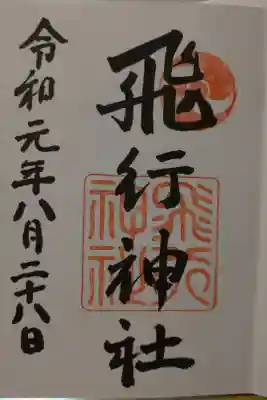 飛行神社
令和元年八月二十八日
飛行
神社